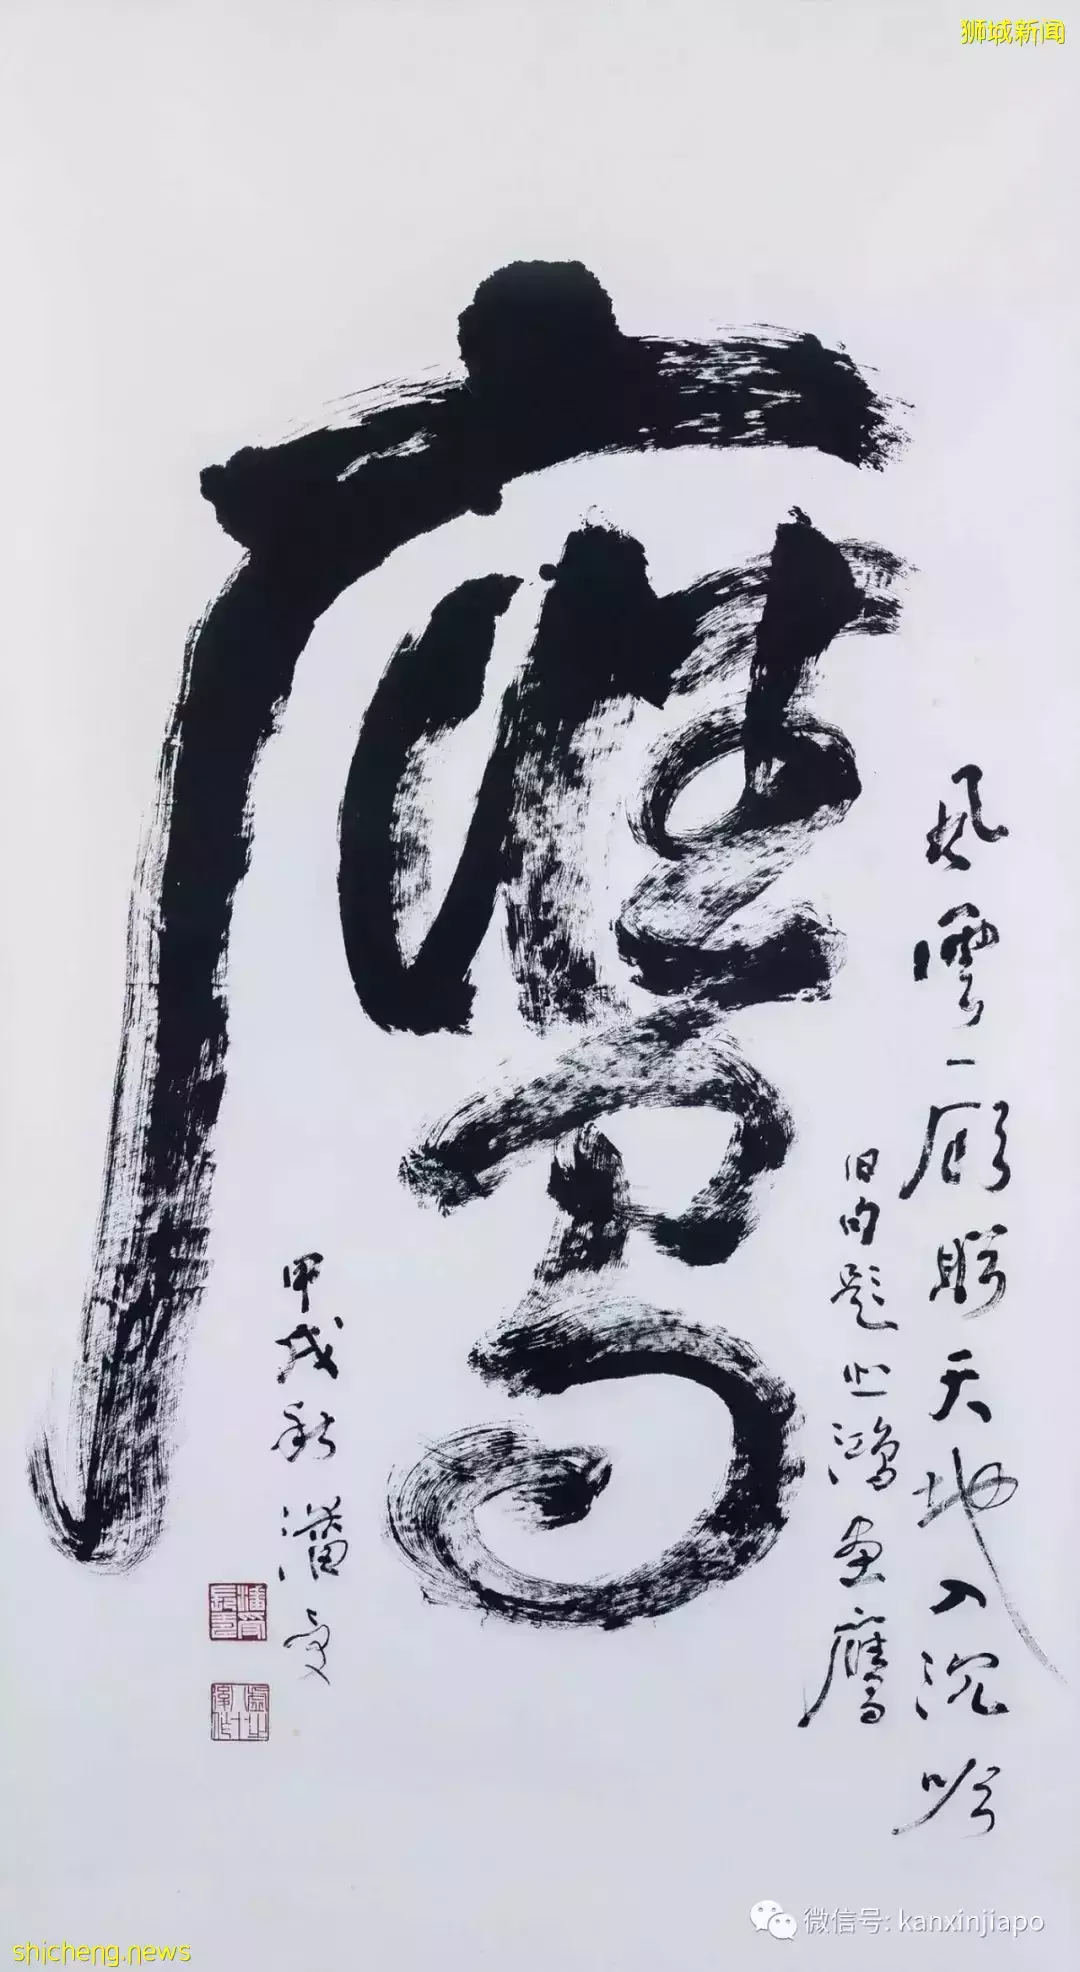 狮城新闻
鹰
风雲一顾盼天地入沉吟
旧句题悲鸿画鹰
甲戌秋 潘受
微信号: kanxinjiapo
shicheng.news